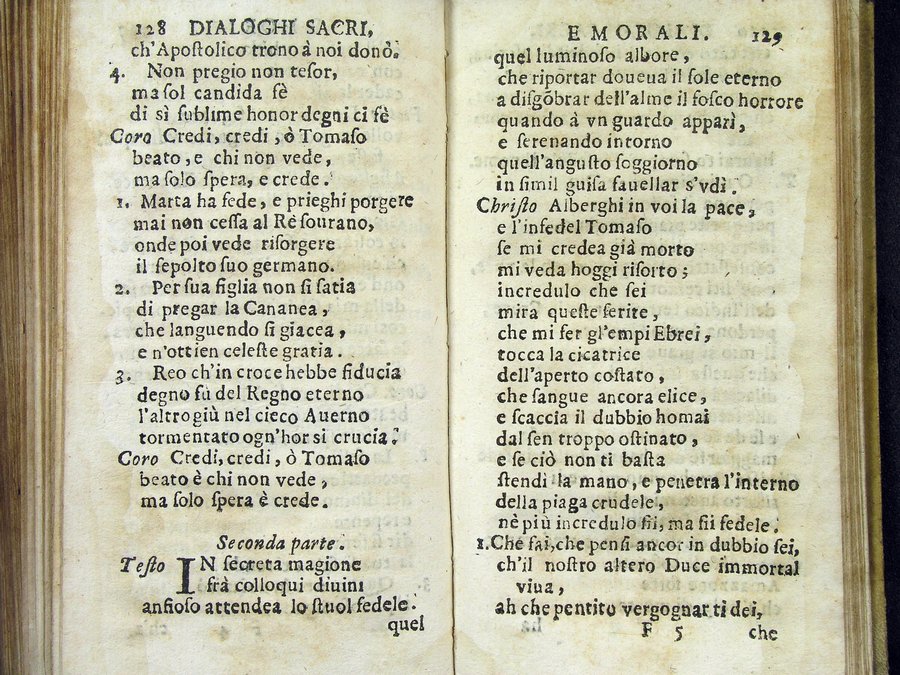 128 DIALOGHI SACRI,
ch'Apoſtolico trono à noi donò.
4. Non pregio non teſor,
ma ſol candida fè
di sì ſublime honor degni ci fè
Coro Credi, credi, ò Tomaſo
beato, e chi non vede,
ma ſolo ſpera, e crede.
1. Marta ha fede, e prieghi porgere
mai non ceſſa al Rè ſourano,
onde poi vede riſorgere
il ſepolto ſuo germano.
2. Per ſua figlia non ſi ſatia
di pregar la Cananea,
che languendo ſi giacea,
e n'ottien celeſte gratia.
3. Reo ch'in croce hebbe fiducia
degno fù del Regno eterno
l'altro giù nel cieco Auerno
tormentato ogn'hor si crucia.
Coro Credi, credi, ò Tomaſo
beato è chi non vede,
ma ſolo ſpera è crede.
Seconda parte.
Teſto IN ſecreta magione
frà colloqui diuini
anſioſo attendea lo ſtuol fedele.
quel
E MORALI. 129
quel luminoſo albore,
che riportar doueua il ſole eterno
a diſgōbrar dell'alme il foſco horrore
quando à vn guardo apparì,
e ſerenando intorno
quell'anguſto ſoggiorno
in ſimil guiſa fauellar s'vdì.
Chriſto Alberghi in voi la pace,
e l'infedel Tomaſo
ſe mi credea già morto
mi veda hoggi riſorto;
incredulo che ſei
mira queſte ferite,
che mi fer gl'empi Ebrei,
tocca la cicatrice
dell'aperto coſtato,
che ſangue ancora elice,
e ſcaccia il dubbio homai
dal ſen troppo oſtinato,
e ſe ciò non ti baſta
ſtendi la mano, e penetra l'interno
della piaga crudele,
nè più incredulo ſii, ma ſii fedele.
1. Che fai, che penſi ancor in dubbio ſei,
ch'il noſtro altero Duce immortal
viua,
ah che pentito vergognar ti dei,
F 5 che